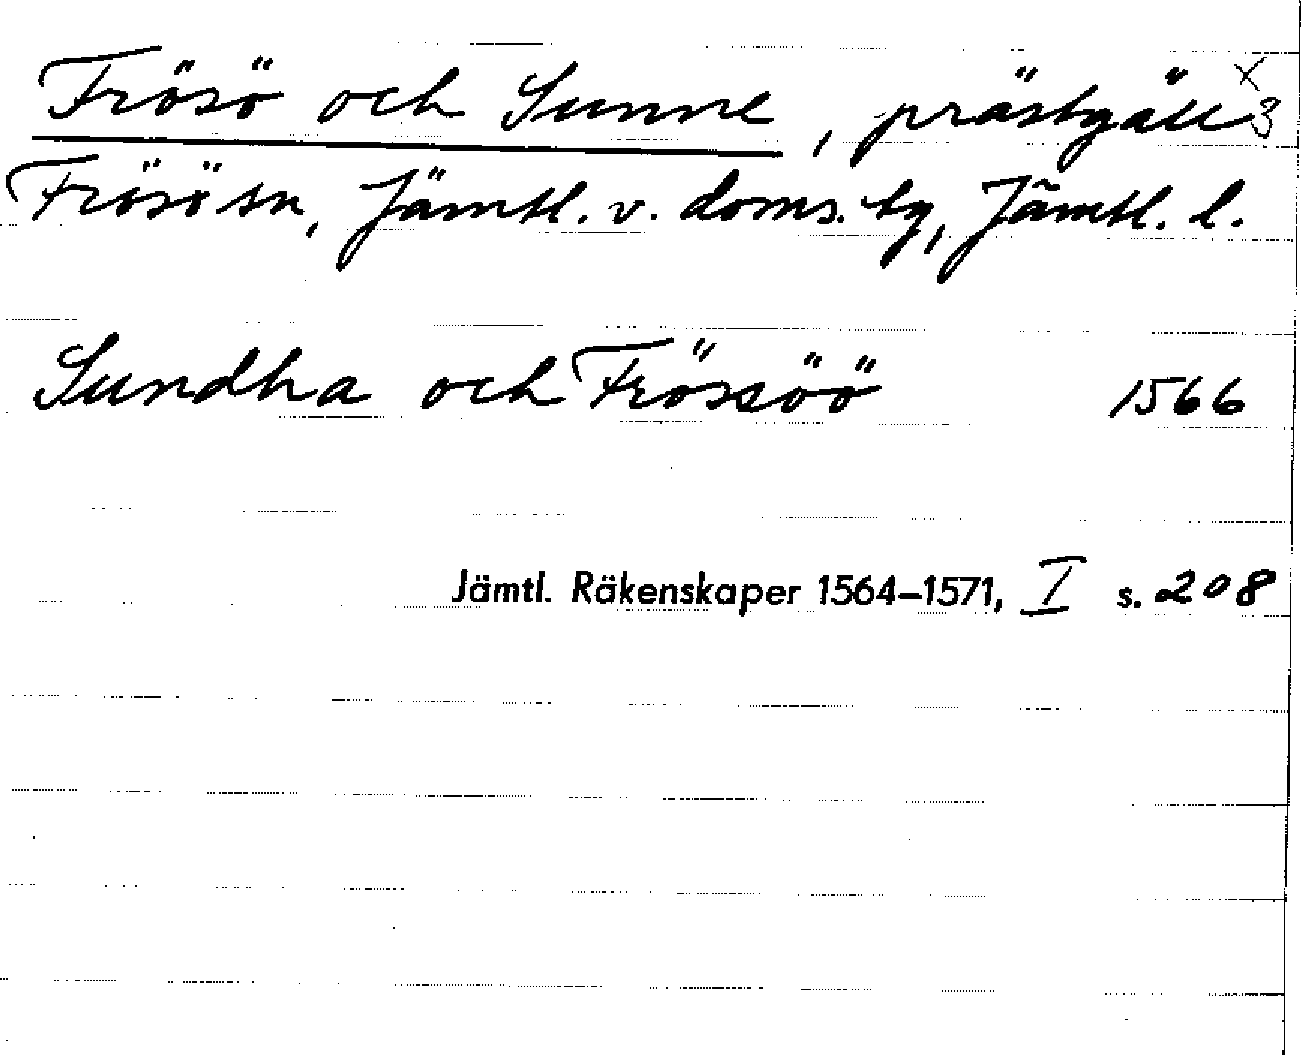 Frösö och Sunne, prästgäll x 3
Frösö sn, Jämtl. v. doms. tg, Jämtl. l.
Sundha och Frössöö 1566
Jämtl. Räkenskaper 1564–1571, I s. 208